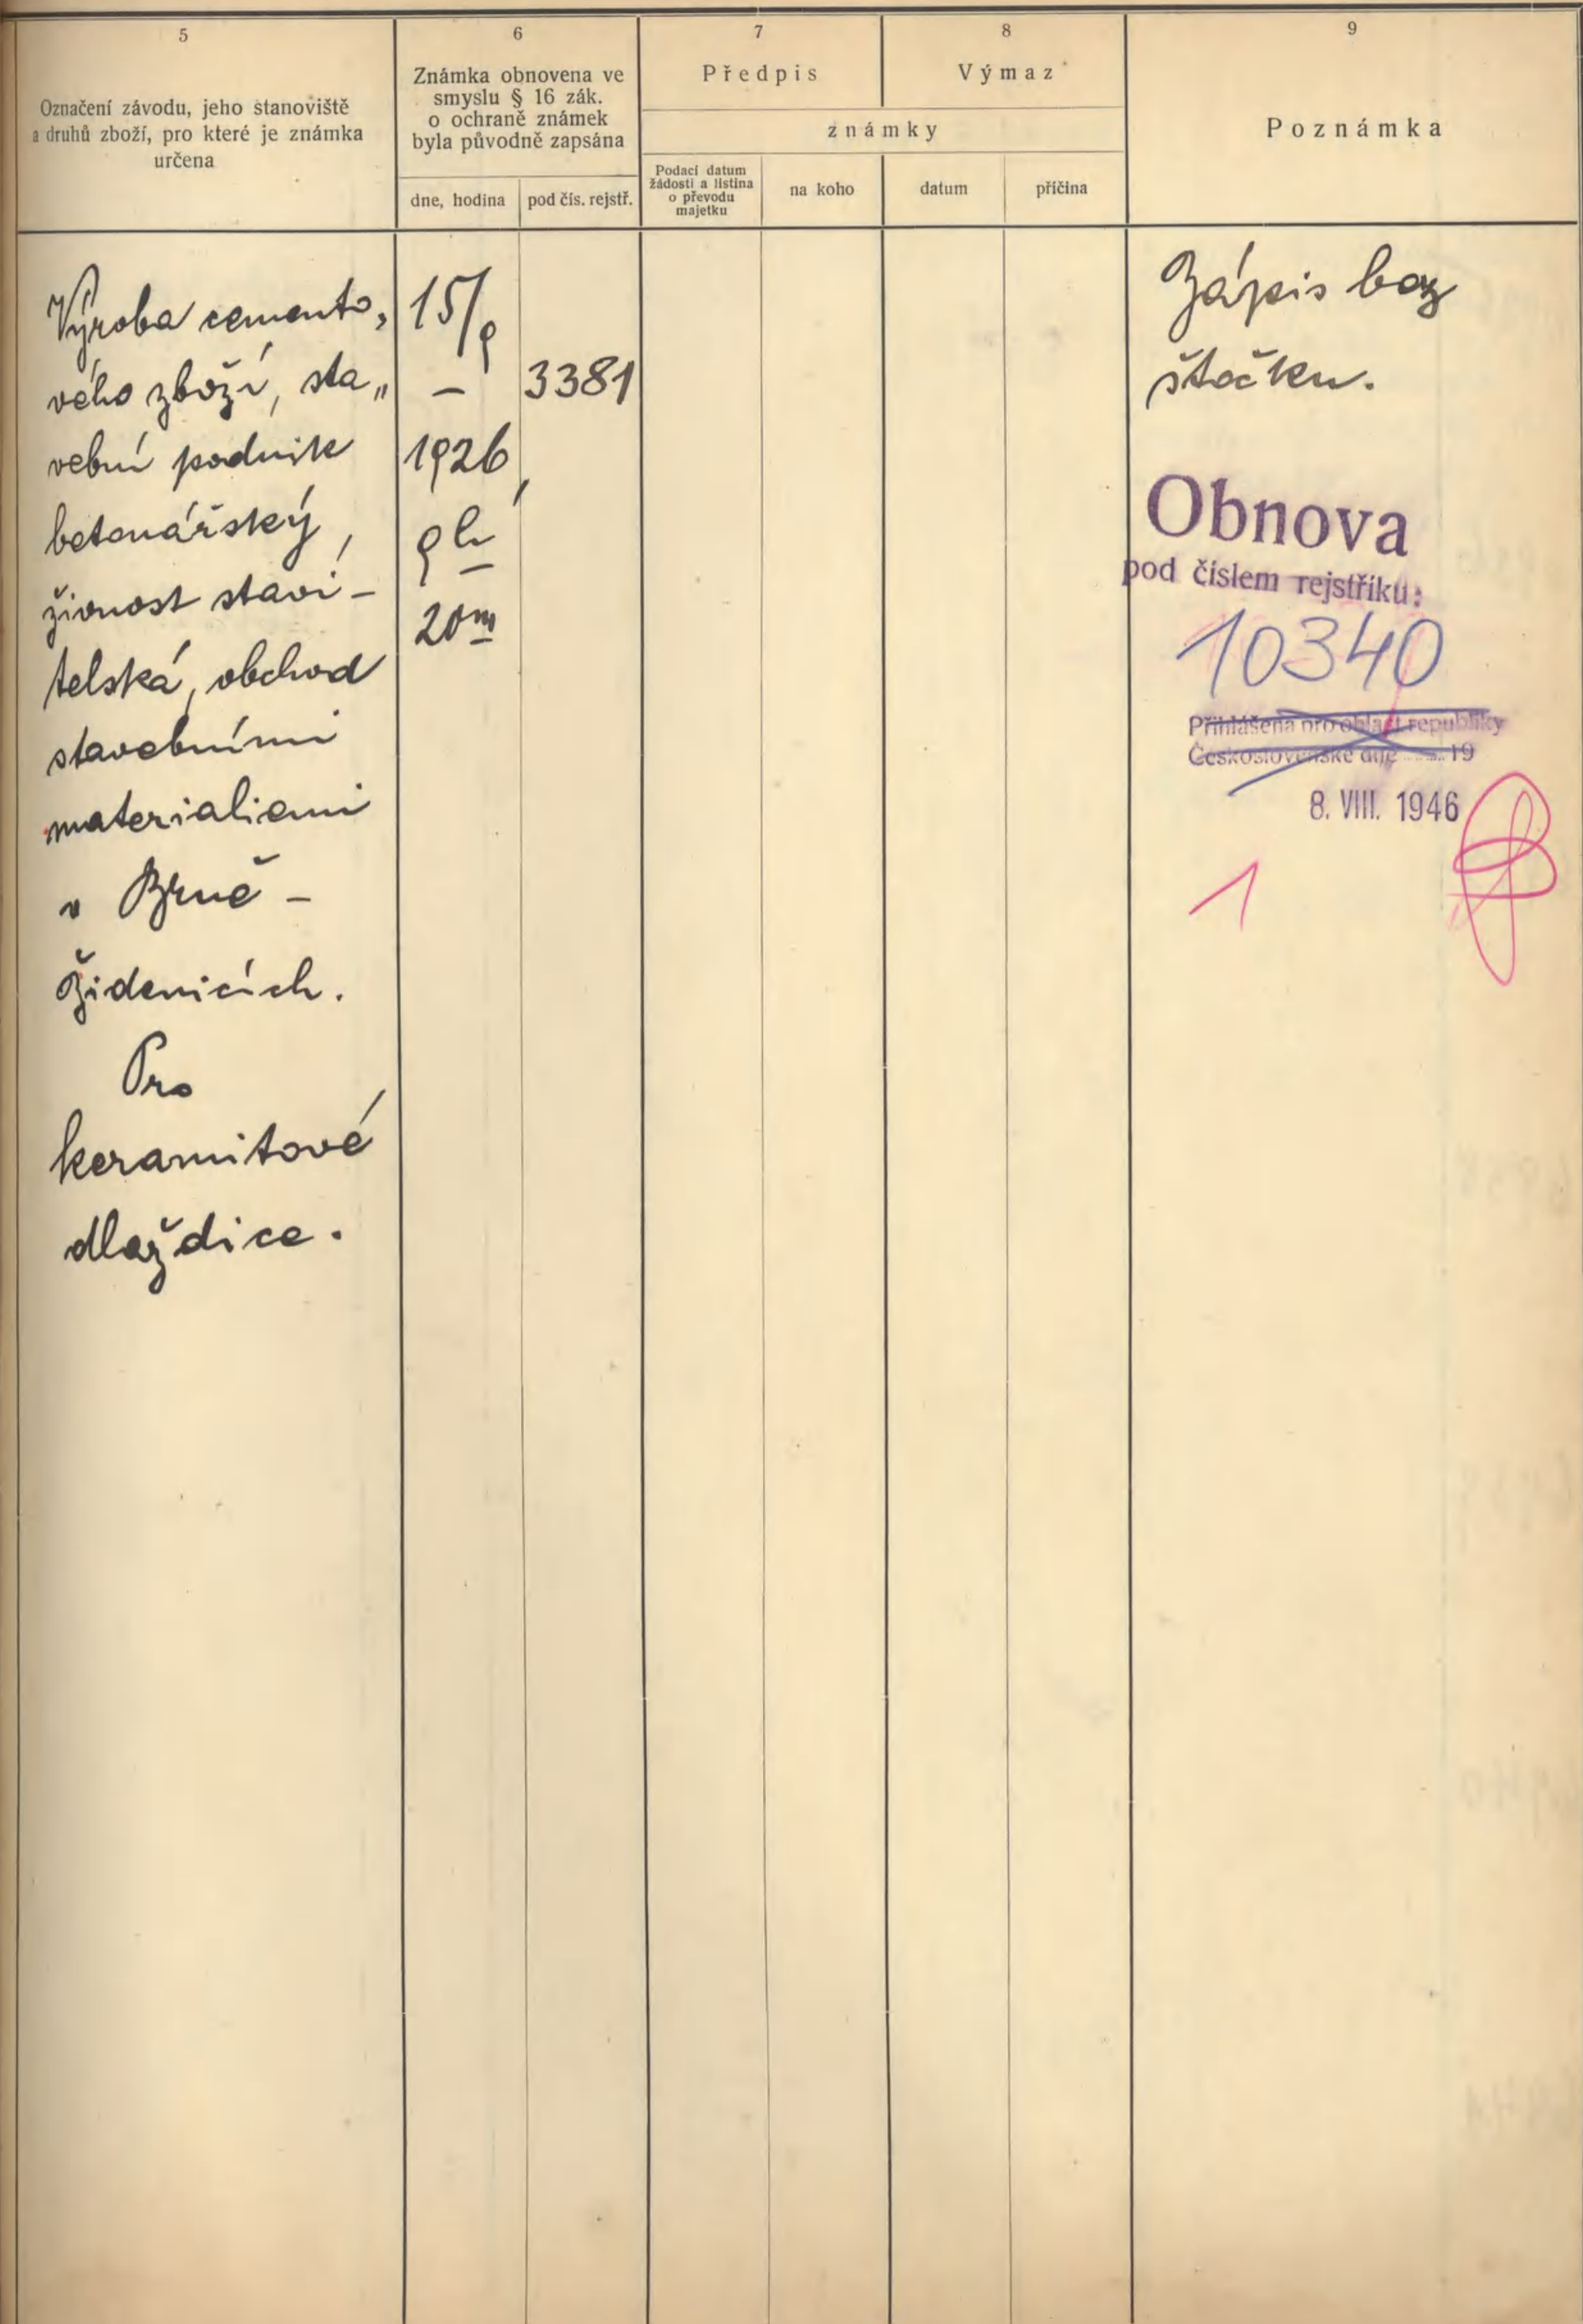 5
Označení závodu, jeho stanoviště
a druhů zboží, pro které je známka
určena
6
Známka obnovena ve
smyslu § 16 zák.
o ochraně známek
byla původně zapsána
dne, hodina
pod čís. rejstř.
7
Předpis
8
Výmaz
známky
Podací datum
žádosti a listina
o převodu
majetku
na koho
datum
příčina
9
Poznámka
Výroba cemento,
vého zboží, sta„
vební podnik
betonářský,
živnost stavi-
telská, obchod
stavebními
materialiemi
v Brně -
Židenicích.
Pro
keramitové
dlaždice.
15/9
-
1926,
9h
20m
3381
Zápis bez
štočku.
Obnova
pod číslem rejstříku:
10340
Přihlášena pro oblast republiky
Československé dne 19
8. VIII. 1946
1